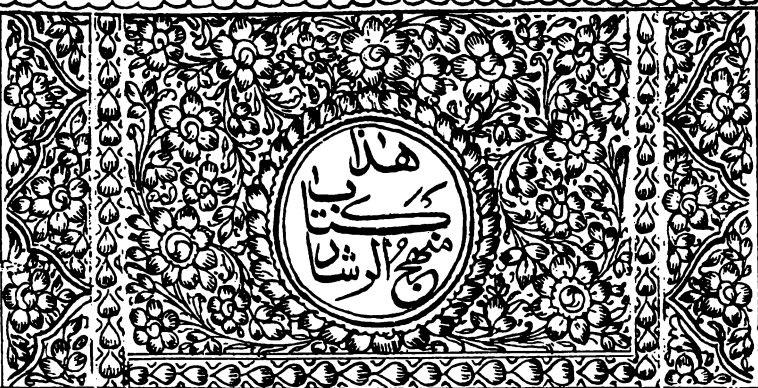 هذا
كتاب
منهج الرشاد